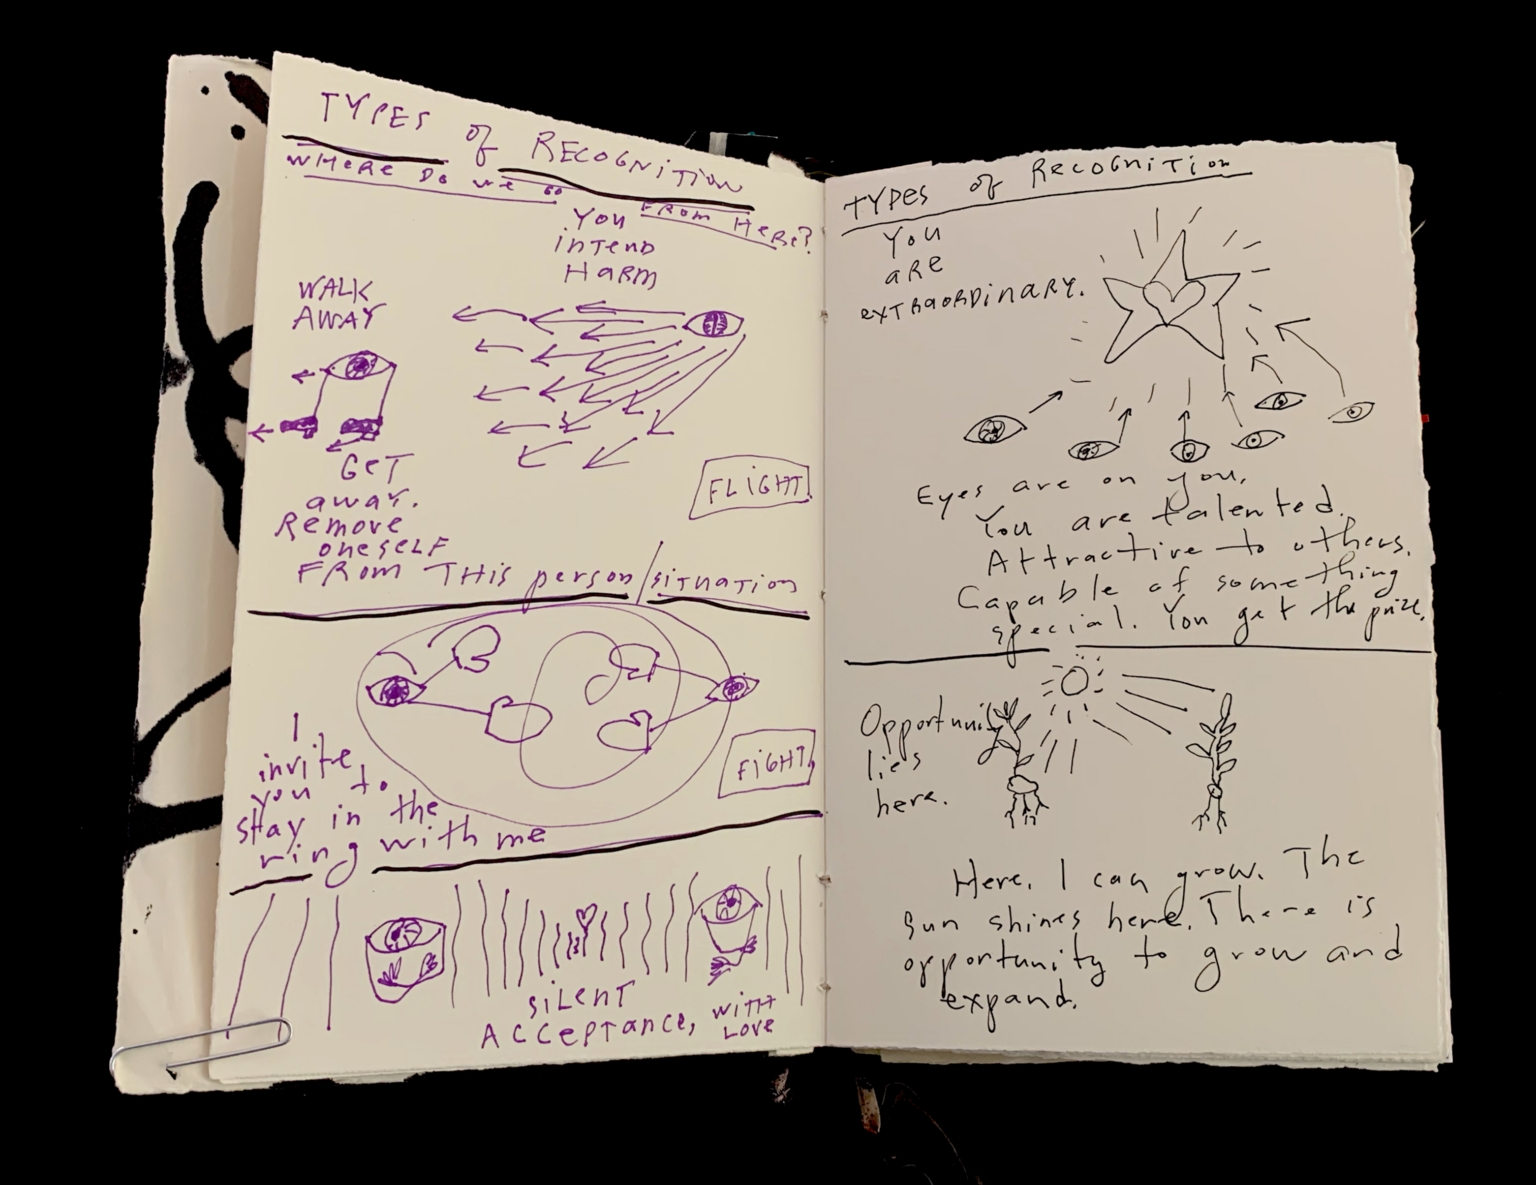 TYPES of RECOGNITION
WHERE DO WE GO FROM HERE?
You
intend
HARM
WALK
AWAY
GET
away.
Remove
oneself
FROM THis person/situation
FLIGHT
I
invite
you to
stay in the
ring with me
FIGHT
SILENT
ACCEPTANCE, WITH
LOVE
TYPES of RECOGNITION
You
are
extraordinary.
Eyes are on you.
You are talented.
Attractive to others.
Capable of something
special. You get the prize.
Opportunity
lies
here.
Here, I can grow. The
sun shines here. There is
opportunity to grow and
expand.